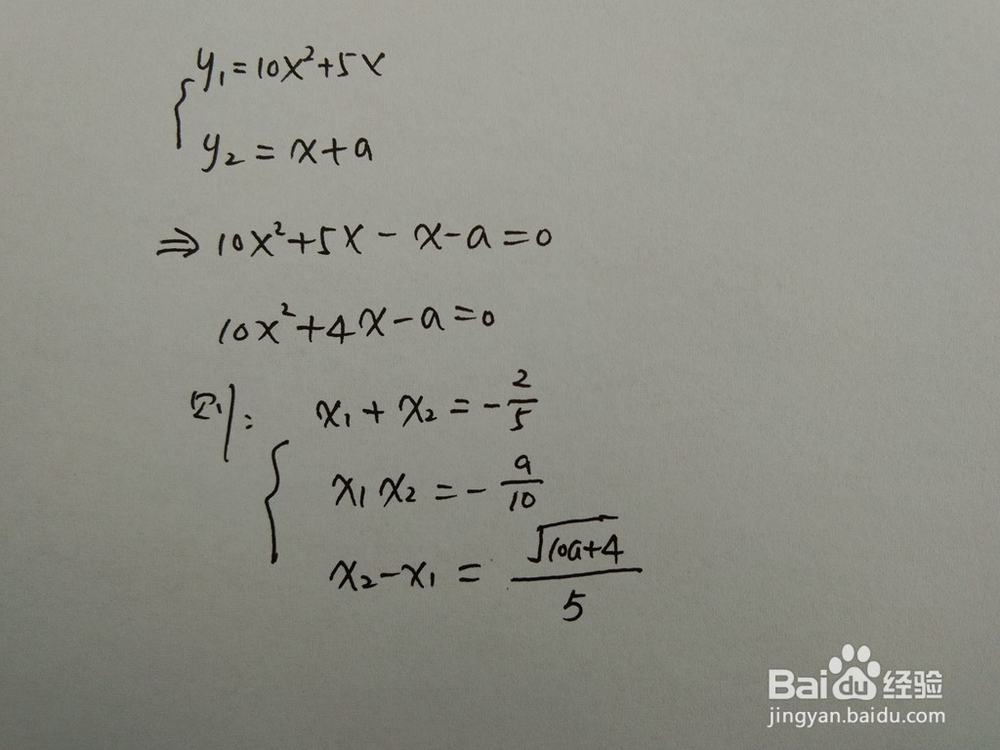 y₁=10x²+5x
y₂=x+a
⇒10x²+5x-x-a=0
10x²+4x-a=0
则: x₁+x₂=-2/5
x₁x₂=-a/10
x₂-x₁=√(10a+4)/5
Baidu经验
jingyan.baidu.com